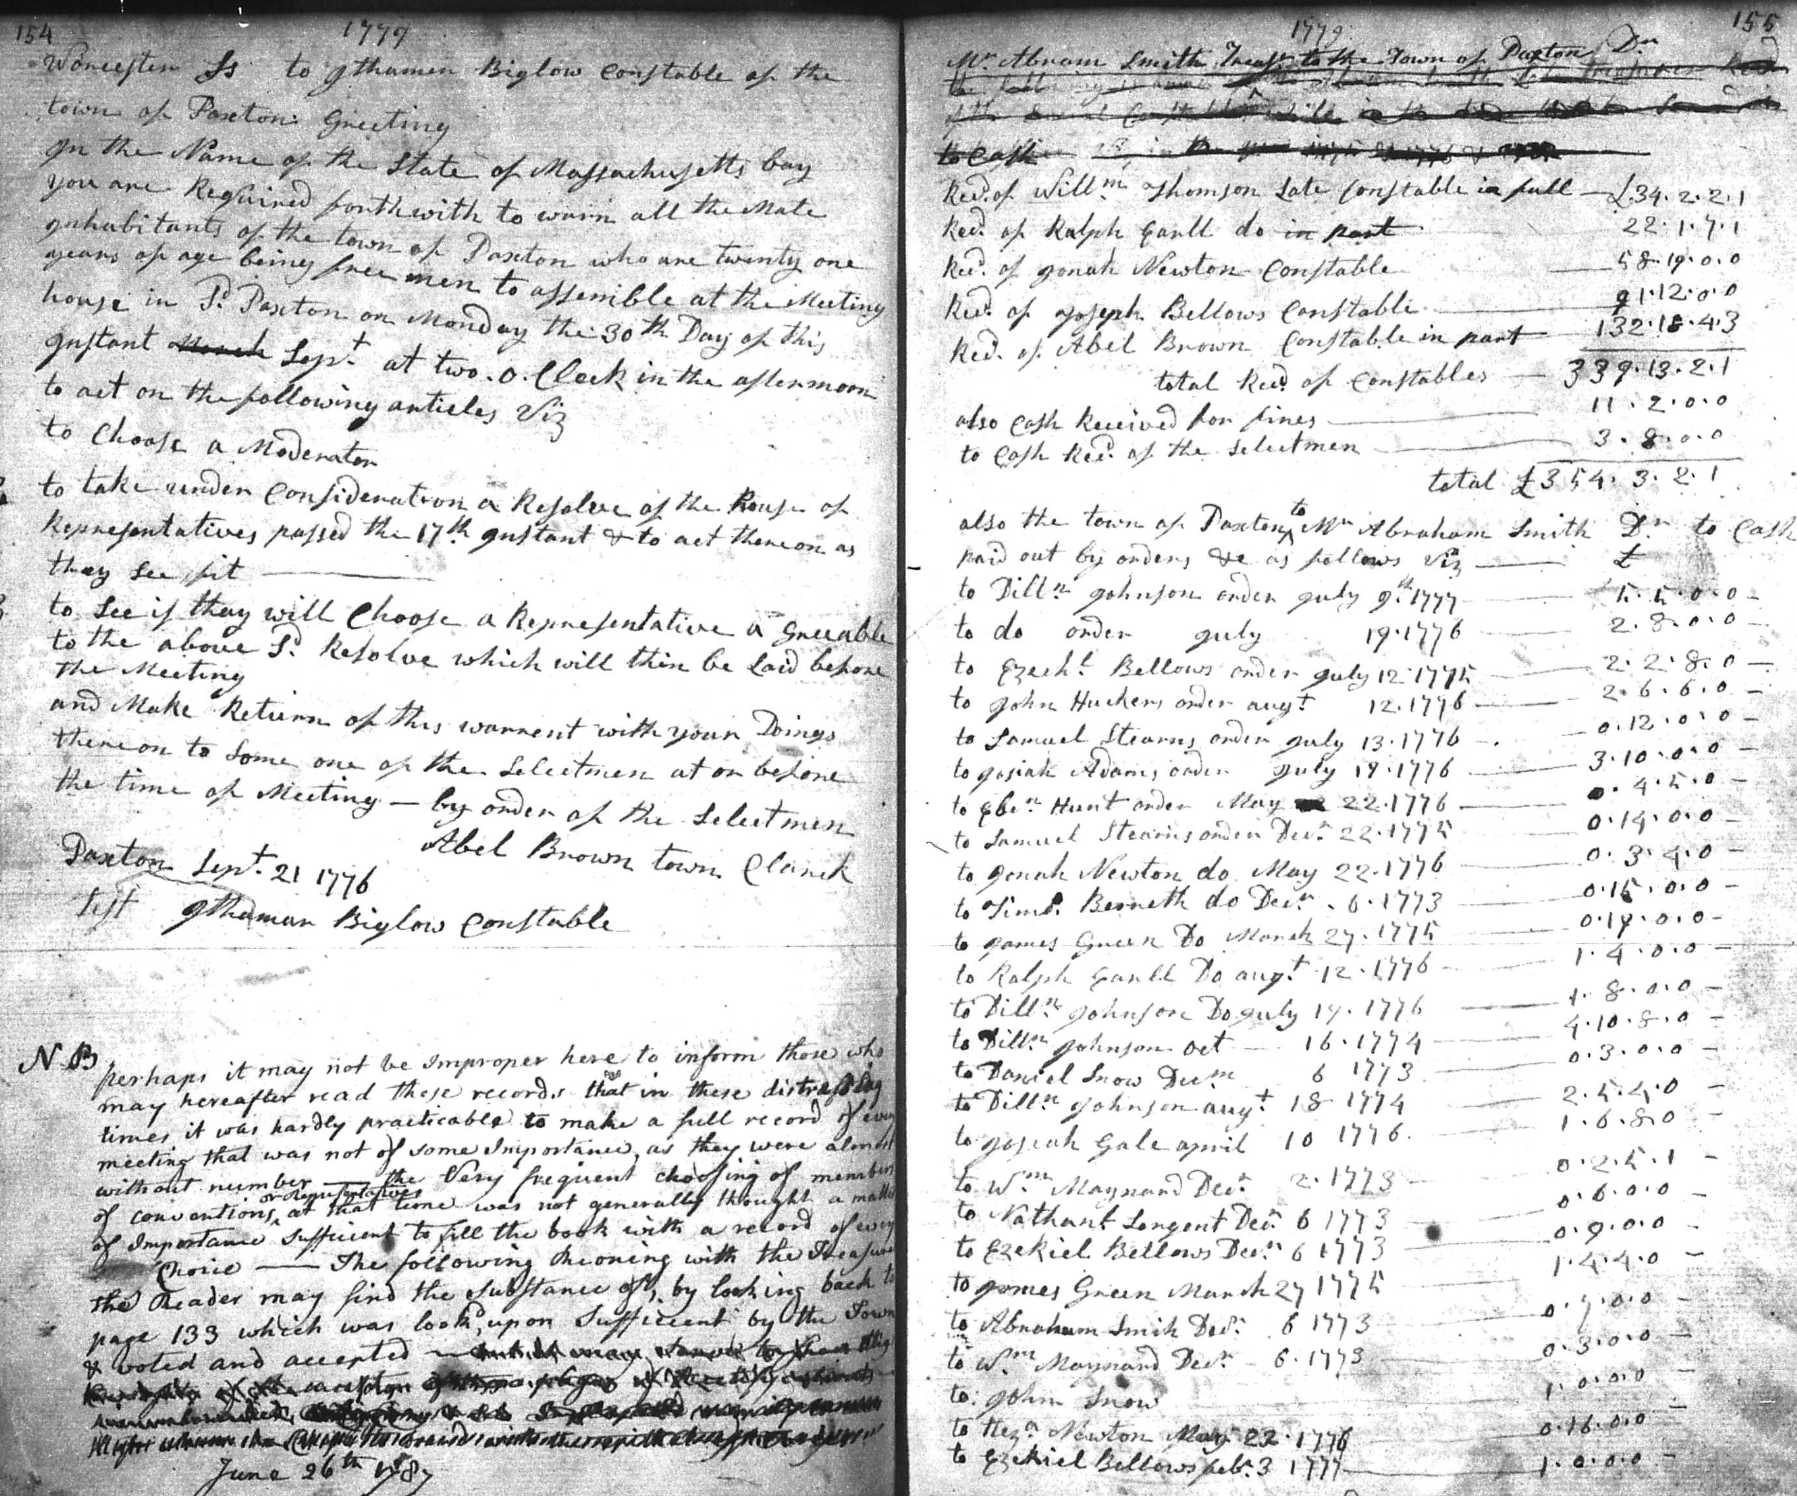 154
1779
Worcester Ss to Ithamer Biglow Constable of the
town of Paxton: Greeting
In the Name of the State of Massachusetts bay
you are Required forthwith to warn all the Male
Inhabitants of the town of Paxton who are twenty one
years of age being free men to assemble at the Meeting
house in Sd. Paxton on Monday the 30th Day of this
Instant Sept at two. o. Clock in the afternoon
to act on the following articles Viz
to Choose a Moderator
to take under Consideration a Resolve of the House of
Representatives passed the 17th Instant & to act thereon as
thay See fit
to See if thay will Choose a Representative a Greeable
to the above Sd. Resolve which will then be Laid before
the Meeting
and Make Return of this warrent with your Doings
thereon to Some one of the Selectmen at or before
the time of Meeting — by order of the Selectmen
Abel Brown town Clarck
Paxton Sept. 21 1776
Test Ithamar Biglow Constable
N B perhaps it may not be Improper here to inform those who
may hereafter read these records that in these distressing
times it was hardly practicable to make a full record of every
meeting that was not of some Importance, as they were almost
without number — the Very frequent choosing of members
of conventions, or Representatives at that time was not generally thought a matter
of Importance Sufficient to fill the book with a record of every
Choice — The following Reconing with the Treasurer
the Reader may find the Substance of, by looking back to
page 133 which was look'd upon Sufficient by the Town
& voted and accepted
June 26th 1787
155
1779
Mr. Abram Smith Treasr to the Town of Paxton Dr
to Cash
Recd. of Willm. Thomson Late Constable in full — £.34.2.2.1
Recd. of Ralph Earll do in part 22.1.7.1
Recd. of Jonah Newton Constable — 58.19.0.0
Recd. of Joseph Bellows Constable — 91.12.0.0
Recd. of Abel Brown Constable in part — 132.18.4.3
total Recd. of Constables — 339.13.2.1
also Cash Received for fines — 11.2.0.0
to Cash Recd. of the Selectmen — 3.8.0.0
total £354.3.2.1
also the town of Paxton to Mr Abraham Smith Dr. to Cash
paid out by orders &c as follows Viz — £
to Dilln Johnson order July 9th 1777 — 5.5.0.0
to do order July 19.1776 — 2.8.0.0
to Ezechl. Bellows order July 12.1775 — 2.2.8.0
to John Huckers order augt. 12.1776 — 2.6.6.0
to Samuel Stearns order July 13.1776 — 0.12.0.0
to Josiah Adams order July 19.1776 — 3.10.0.0
to Ebenr Hunt order May 22.1776 — 0.4.5.0
to Samuel Stearns order Decr. 22.1775 — 0.14.0.0
to Jonah Newton do May 22.1776 — 0.3.4.0
to Timo. Berneth do Decr. 6.1773 — 0.15.0.0
to James Green Do March 27.1775 — 0.17.0.0
to Ralph Earll Do augt. 12.1776 — 1.4.0.0
to Dilln. Johnson Do July 19.1776 — 1.8.0.0
to Dilln. Johnson oct — 16.1774 — 4.10.8.0
to Daniel Snow Decm 6 1773 — 0.3.0.0
to Dilln. Johnson augt 18 1774 — 2.5.4.0
to Josiah Gale april 10 1776. — 1.6.8.0
to Wm. Maynard Decr. 2.1773 — 0.2.5.1
to Nathanl. Sergent Decr. 6 1773 — 0.6.0.0
to Ezekiel Bellows Decr. 6 1773 — 0.9.0.0
to James Green March 27 1775 — 1.4.4.0
to Abraham Smith Decr. 6 1773 — 0.7.0.0
to Wm. Maynard Decr. 6.1773 — 0.3.0.0
to John Snow — 1.0.0.0
to Hezh. Newton May 22.1776 — 0.16.0.0
to Ezekiel Bellows feb. 3 1777 — 1.0.0.0